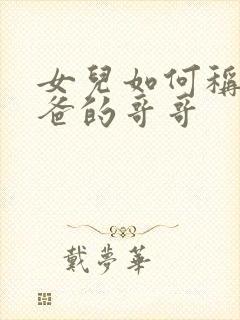 女兒如何稱
爸的哥哥
戴夢華